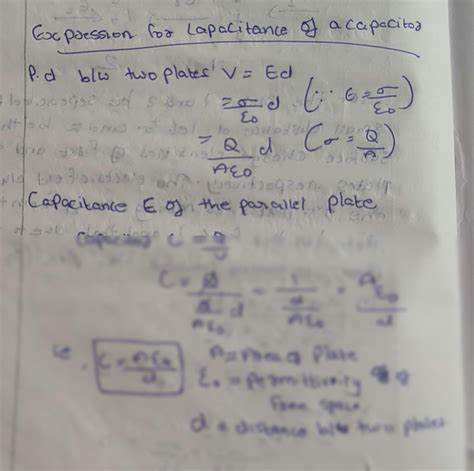 Expression for capacitance of a capacitor
P.d b/w two plates' V = Ed
= σ/ε0 d (∵ E = σ/ε0)
= Q/Aε0 d (σ = Q/A)
Capacitance E of the parallel plate
C = Q/V
C = Q/(Q/Aε0 d) = 1/(d/Aε0) = Aε0/d
ie, C = Aε0/d A = Area of plate
ε0 = permittivity of
free space
d = distance b/w two plates